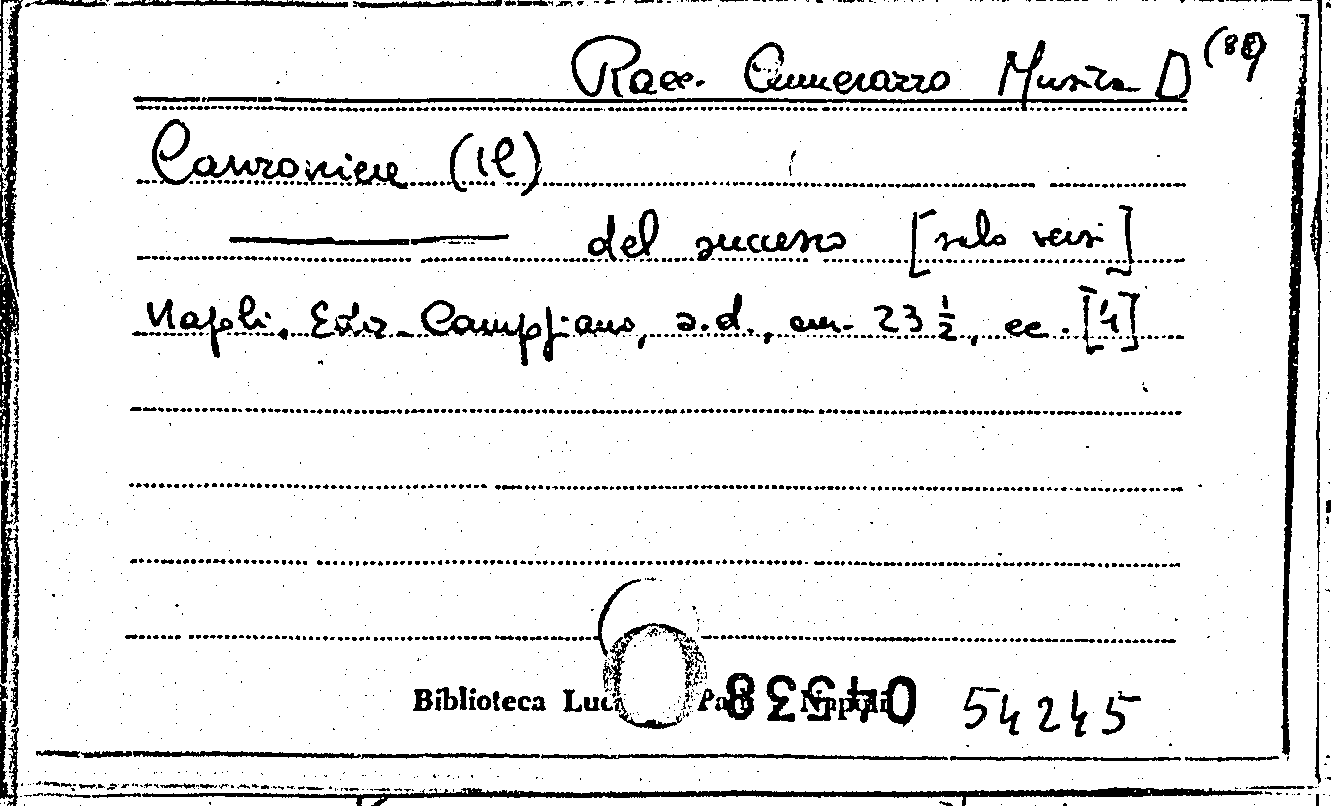 Racc. Cumerazzo Musica D (88)
Canzoniere (Il)
del successo [solo versi]
Napoli, Ediz. Campiano, s.d., cm. 23 1/2, cc. [4]
Biblioteca Luc
04538 54245